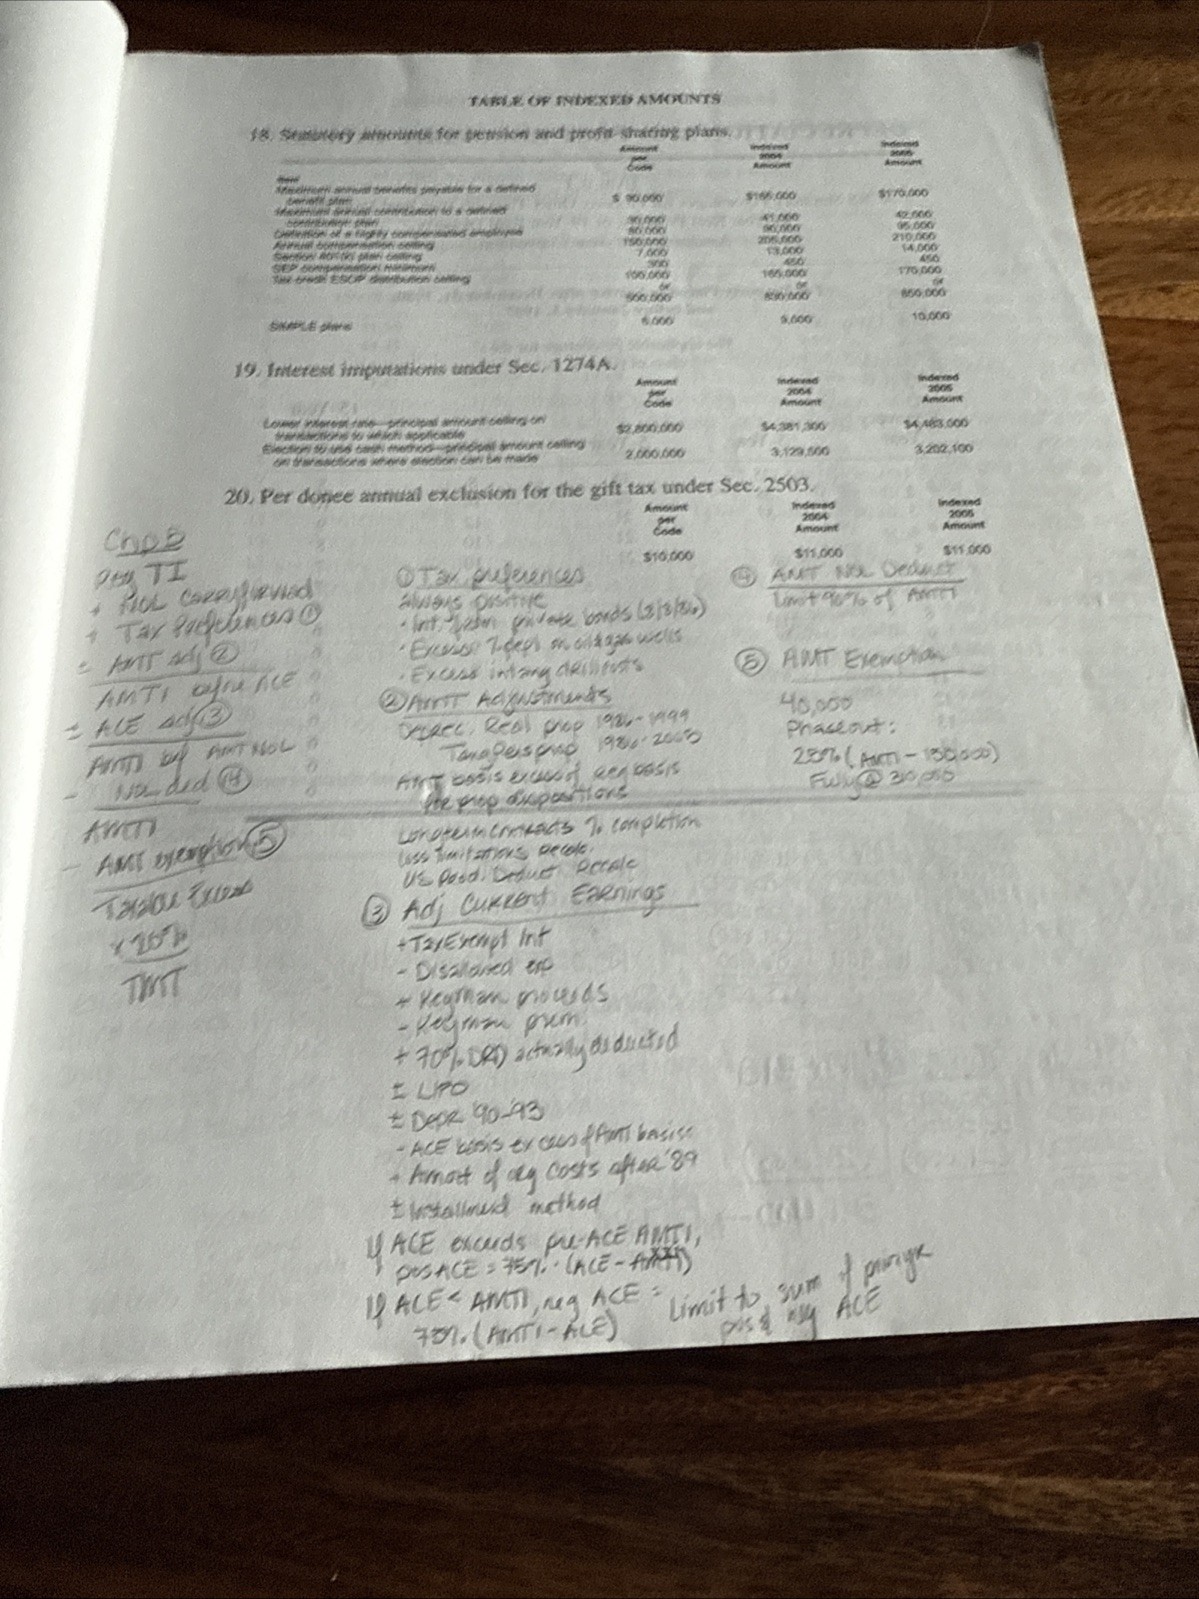 TABLE OF INDEXED AMOUNTS
18. Statutory amounts for pension and profit-sharing plans.
Amount per Code
Indexed 2004 Amount
Indexed 2005 Amount
Item
Maximum annual benefits payable for a defined benefit plan $ 90,000 $165,000 $170,000
Maximum annual contribution to a defined contribution plan 30,000 41,000 42,000
Definition of a highly compensated employee 80,000 90,000 95,000
Annual compensation ceiling 150,000 205,000 210,000
Section 401(k) plan ceiling 7,000 13,000 14,000
SEP compensation minimum 300 450 450
Tax credit ESOP distribution ceiling 100,000 165,000 170,000
or or or
500,000 830,000 850,000
SIMPLE plans 6,000 9,000 10,000
19. Interest imputations under Sec. 1274A.
Amount per Code
Indexed 2004 Amount
Indexed 2005 Amount
Lower interest rate—principal amount ceiling on transactions to which applicable $2,800,000 $4,381,300 $4,483,000
Election to use cash method—principal amount ceiling on transactions where election can be made 2,000,000 3,129,500 3,202,100
20. Per donee annual exclusion for the gift tax under Sec. 2503.
Amount per Code
Indexed 2004 Amount
Indexed 2005 Amount
$10,000 $11,000 $11,000
TI
+ NOL Carryforward
+ Tax Preferences ①
± AMT adj ②
AMTI before ACE
± ACE adj ③
AMTI bf AMT NOL
- NOL ded ④
AMTI
- AMT exemption ⑤
Taxable Excess
x 20%
TMT
① Tax preferences
always positive
· Int. from private bonds (8/8/86)
· Excess % depl on oil & gas wells
· Excess intang drill costs
② AMT Adjustments
Deprec. Real prop 1986-1999
Tang Pers prop
AMT basis excess of reg basis
for prop dispositions
Longterm contracts % completion
loss limitations recalc.
US Prod. Deduct Recalc
③ Adj Current Earnings
+ Tax Exempt Int
- Disallowed exp
+ Keyman proceeds
- Keyman prem
+ 70% DRD actually deducted
± LIFO
± Depr '90-'93
- ACE basis excess of AMT basis
+ Amort of org costs after '89
± Installment method
If ACE exceeds pre-ACE AMTI,
pos ACE = 75% · (ACE - AMTI)
If ACE < AMTI, neg ACE =
75% · (AMTI - ACE)
Limit to sum of prior yr
pos & neg ACE
④ AMT NOL Deduct
Limit 90% of AMTI
⑤ AMT Exemption
40,000
Phaseout:
25% (AMTI - 150,000)
Fully @ 310,000